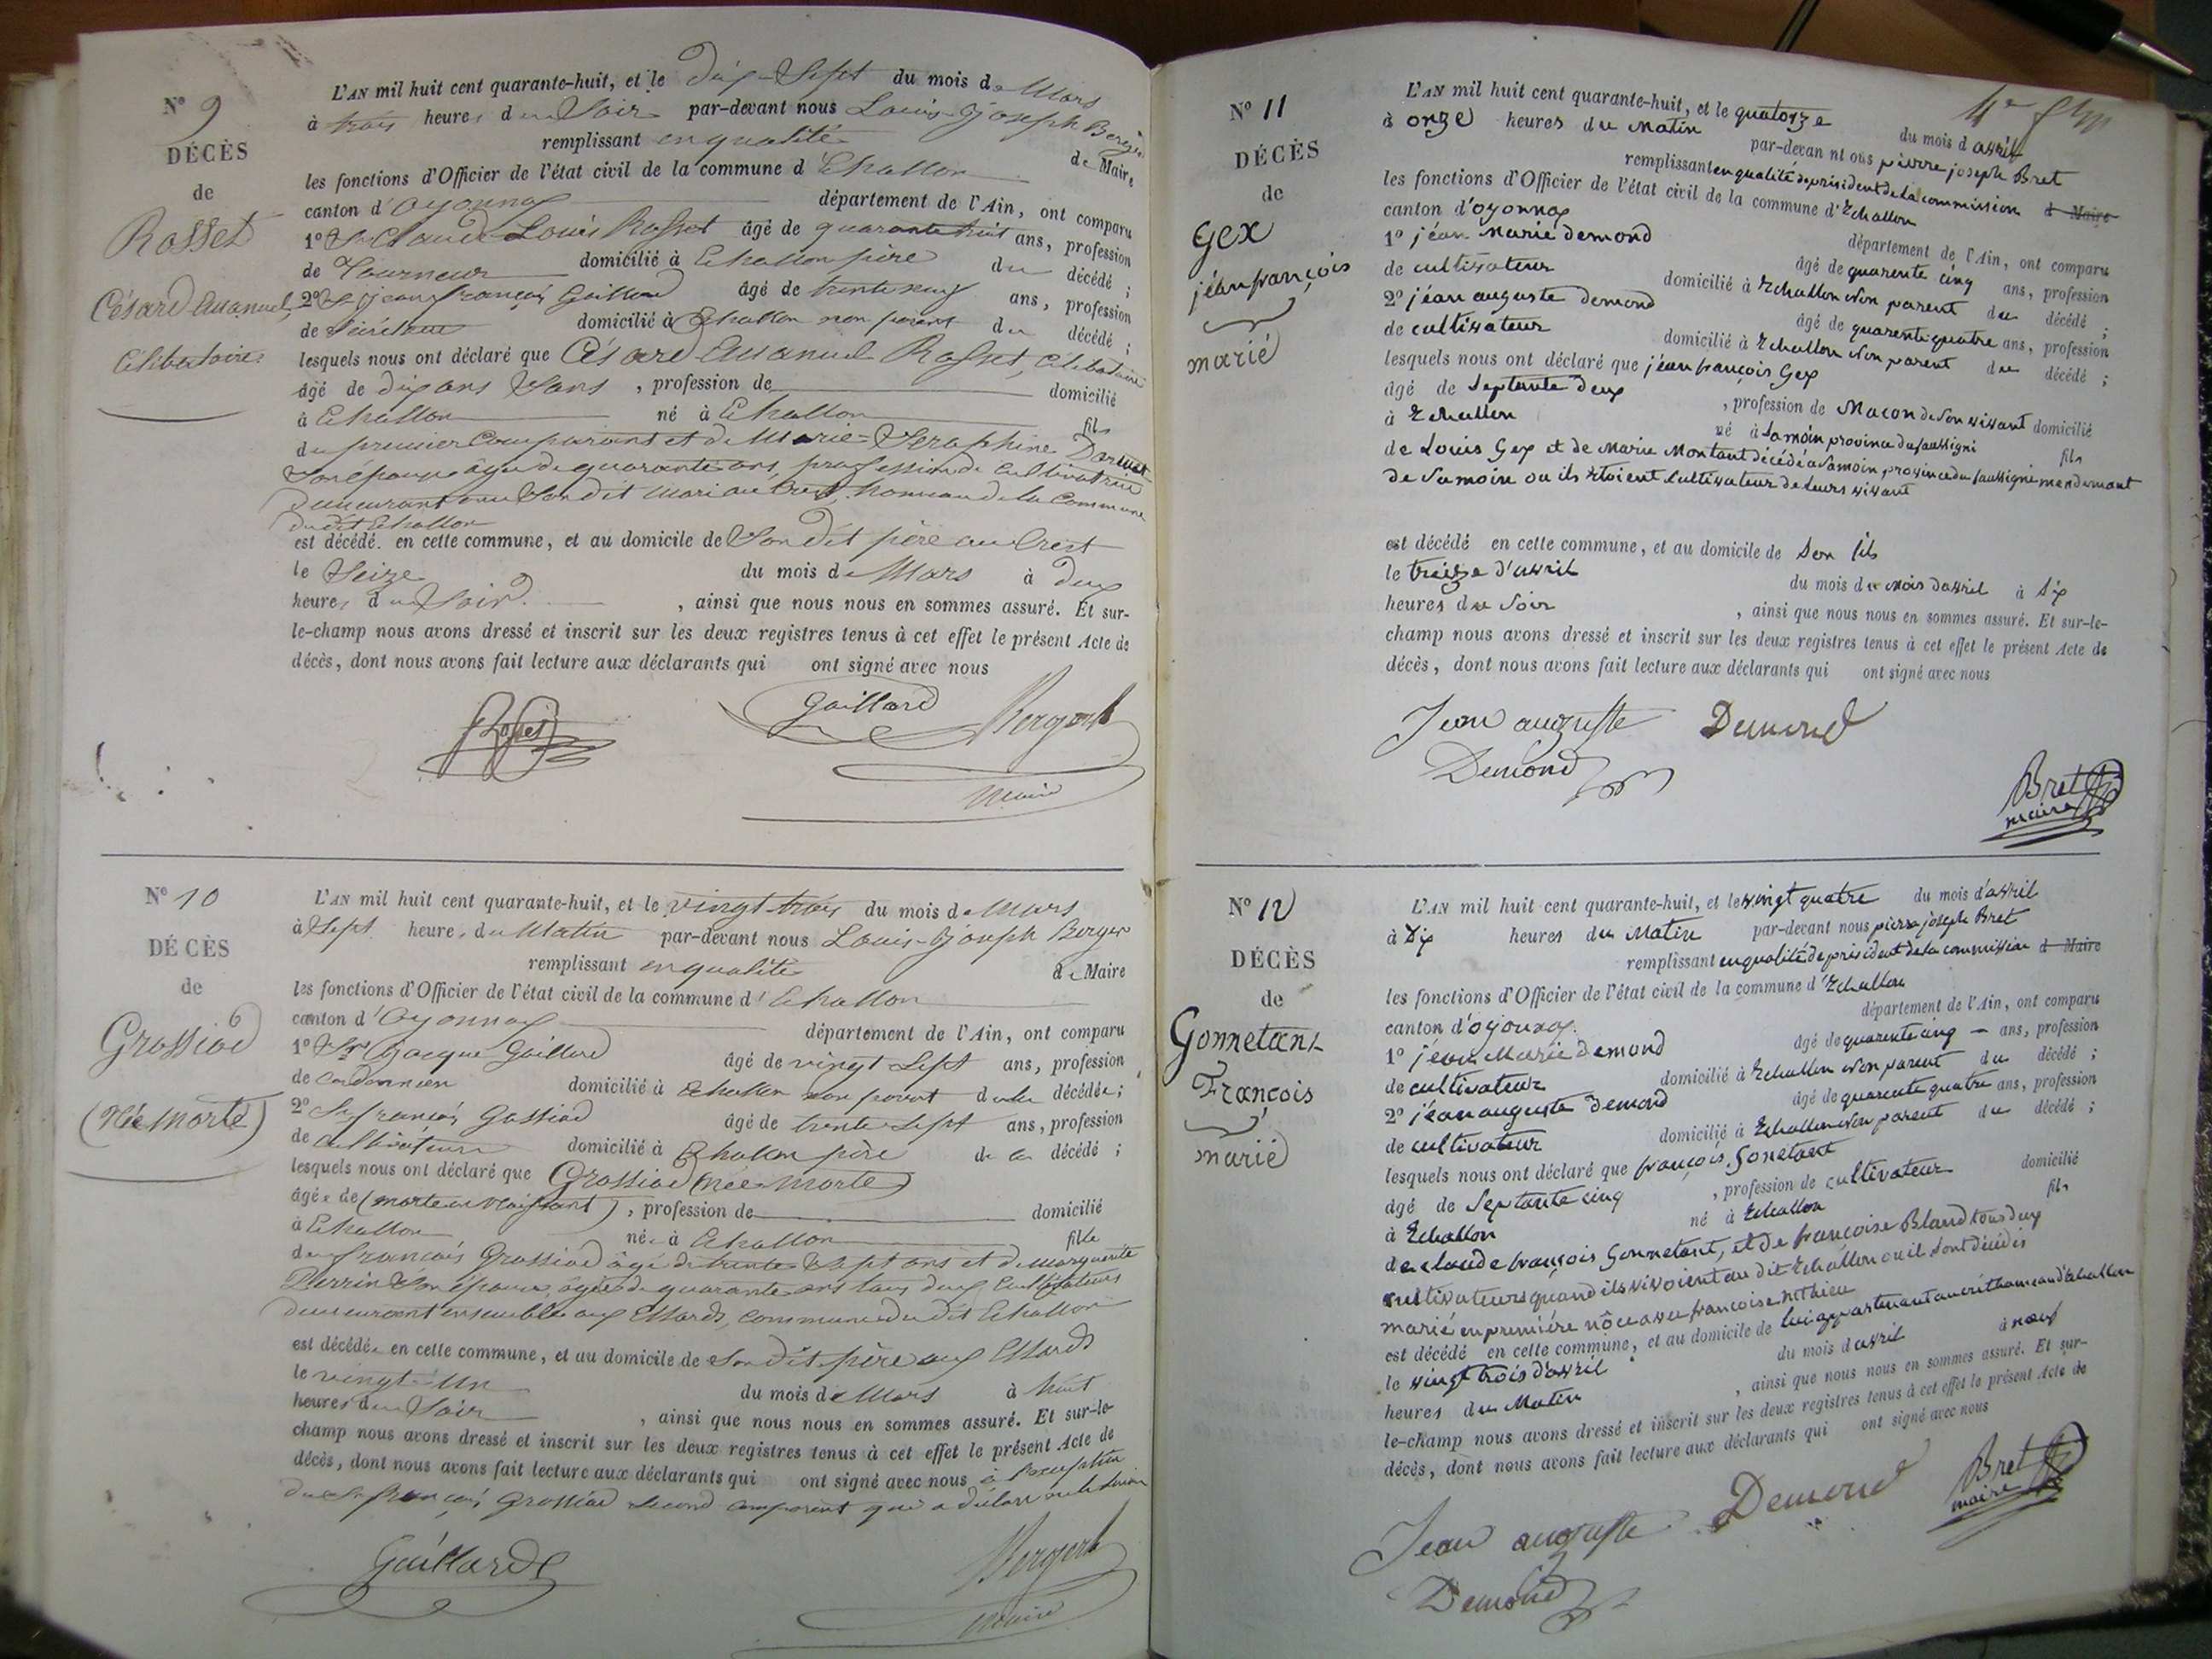 N° 9
DÉCÈS
de
Rosset
César Emanuel
Célibataire
L'AN mil huit cent quarante-huit, et le dix-Sept du mois de Mars
à trois heures du Soir par-devant nous Louis-Joseph Berger
remplissant en qualité de Maire
les fonctions d'Officier de l'état civil de la commune d'Echallon
canton d'Oyonnax département de l'Ain, ont comparu
1° Sr Claude Louis Rosset âgé de quarante huit ans, profession
de Tourneur domicilié à Echallon père du décédé ;
2° Sr jean françois Gaillard âgé de trente neuf ans, profession
de Secrétaire domicilié à Echallon non parent du décédé ;
lesquels nous ont déclaré que César Emanuel Rosset, Célibataire
âgé de dix ans Sans , profession de domicilié
à Echallon né à Echallon fils
du premier Comparant et de Marie-Séraphine
Son épouse âgée de quarante ans, profession de Cultivatrice
Demeurant avec Son dit mari au Crest, hameau de la Commune
du dit Echallon
est décédé en cette commune, et au domicile de Son dit père au Crest
le Seize du mois de Mars à deux
heures du Soir. , ainsi que nous nous en sommes assuré. Et sur-
le-champ nous avons dressé et inscrit sur les deux registres tenus à cet effet le présent Acte de
décès, dont nous avons fait lecture aux déclarants qui ont signé avec nous
Rosset Gaillard Berger
Maire
N° 10
DÉCÈS
de
Grossiod
(Née Morte)
L'AN mil huit cent quarante-huit, et le vingt-trois du mois de Mars
à Sept heures du Matin par-devant nous Louis-Joseph Berger
remplissant en qualité de Maire
les fonctions d'Officier de l'état civil de la commune d'Echallon
canton d'Oyonnax département de l'Ain, ont comparu
1° Sr Jacque Gaillard âgé de vingt Sept ans, profession
de Cordonnier domicilié à Echallon non parent de la décédée ;
2° Sr françois Gossiod âgé de trente Sept ans, profession
de Cultivateur domicilié à Echallon père de la décédé ;
lesquels nous ont déclaré que Grossiod (née Morte)
âgée de (morte en Naissant) , profession de domicilié
à Echallon née à Echallon fille
de françois Grossiod âgé de trente Sept ans et de marguerite
Perrin Son épouse, âgée de quarante ans tous deux Cultivateurs
demeurant ensemble aux Essards, commune du dit Echallon
est décédée en cette commune, et au domicile de Son dit père aux Essards
le vingt-Un du mois de Mars à huit
heures du Soir , ainsi que nous nous en sommes assuré. Et sur-le-
champ nous avons dressé et inscrit sur les deux registres tenus à cet effet le présent Acte de
décès, dont nous avons fait lecture aux déclarants qui ont signé avec nous à l'exception
du Sr françois Grossiod second comparant qui a déclaré
Gaillard Berger
Maire
N° 11
DÉCÈS
de
Gex
jéan françois
marié
L'AN mil huit cent quarante-huit, et le quatorze du mois d'avril
à onze heures du Matin par-devant nous pierre joseph Bret
remplissant en qualité de président de la commission de Maire
les fonctions d'Officier de l'état civil de la commune d'Echallon
canton d'oyonnax département de l'Ain, ont comparu
1° jéan Marie demond âgé de quarente cinq ans, profession
de cultivateur domicilié à Echallon Non parent du décédé ;
2° jéan auguste demond âgé de quarente quatre ans, profession
de cultivateur domicilié à Echallon Non parent du décédé ;
lesquels nous ont déclaré que jéan françois Gex
âgé de Septante deux , profession de Macon de Son vivant domicilié
à Echallon né à Samoin province du faussigni fils
de Louis Gex et de Marie Montant décédé a Samoin province du faussigni mandemant
de Samoin ou ils étoient Cultivateur de Leurs vivant
est décédé en cette commune, et au domicile de Son fils
le treize d'avril du mois du mois d'avril à Six
heures du Soir , ainsi que nous nous en sommes assuré. Et sur-le-
champ nous avons dressé et inscrit sur les deux registres tenus à cet effet le présent Acte de
décès, dont nous avons fait lecture aux déclarants qui ont signé avec nous
Jean auguste Demond
Demond
Bret
maire
N° 12
DÉCÈS
de
Gonnetant
François
marié
L'AN mil huit cent quarante-huit, et le vingt quatre du mois d'avril
à Dix heures du Matin par-devant nous pierre joseph Bret
remplissant en qualité de président de la commission de Maire
les fonctions d'Officier de l'état civil de la commune d'Echallon
canton d'oyonnax. département de l'Ain, ont comparu
1° jéan Marie demond âgé de quarente cinq ans, profession
de cultivateur domicilié à Echallon Non parent du décédé ;
2° jéan auguste demond âgé de quarente quatre ans, profession
de cultivateur domicilié à Echallon Non parent du décédé ;
lesquels nous ont déclaré que françois Gonetant
âgé de Septante cinq , profession de cultivateur domicilié
à Echallon né à Echallon fils
de claude françois Gonnetant, et de françoise Bland tous deux
cultivateurs quand ils vivoient au dit Echallon ou il sont décédés
marié en première nôce avec francoise
est décédé en cette commune, et au domicile de lui appartenant au crêt hameau d'Echallon
le vingt trois d'avril du mois d'avril à neuf
heures du Matin , ainsi que nous nous en sommes assuré. Et sur-
le-champ nous avons dressé et inscrit sur les deux registres tenus à cet effet le présent Acte de
décès, dont nous avons fait lecture aux déclarants qui ont signé avec nous
Jean auguste Demond Bret
Demond maire